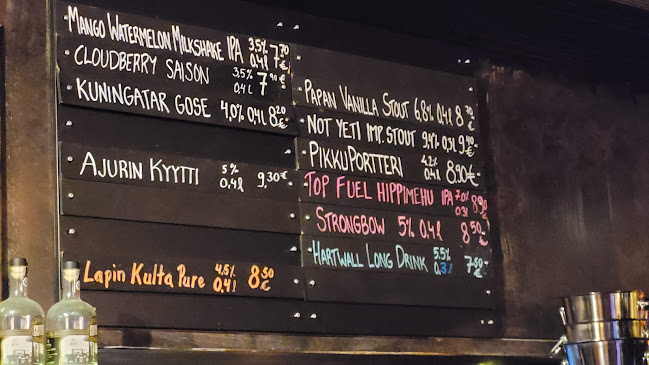 MANGO WATERMELON MILKSHAKE IPA 3,5% 0,4l 7,70€
CLOUDBERRY SAISON 3,5% 0,4l 7,90€
KUNINGATAR GOSE 4,0% 0,4l 8,20€
AJURIN KYYTTI 5% 0.4l 9,30€
Lapin Kulta Pure 4,5% 0,4l 8,50€
PAPAN VANILLA STOUT 6,8% 0,4l 8,70€
NOT YETI IMP. STOUT 9,4% 0,3l 9,40€
PIKKUPORTTERI 4,2% 0,4l 8,90€
TOP FUEL HIPPIMEHU IPA 7,0% 0,3l 8,90€
STRONGBOW 5% 0,4l 8,50€
HARTWALL LONG DRINK 5.5% 0,3l 7,50€